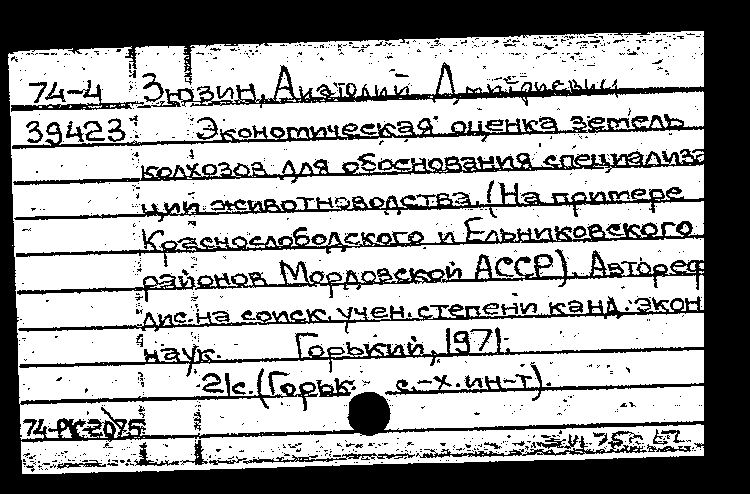 74-4 Зюзин, Анатолий Дмитриевич
39423 Экономическая оценка земель
колхозов для обоснования специализа
ции животноводства. (На примере
Краснослободского и Ельниковского
районов Мордовской АССР). Автореф
дис. на соиск. учен. степени канд. экон
наук. Горький, 1971.
21с. (Горьк. с.-х. ин-т).